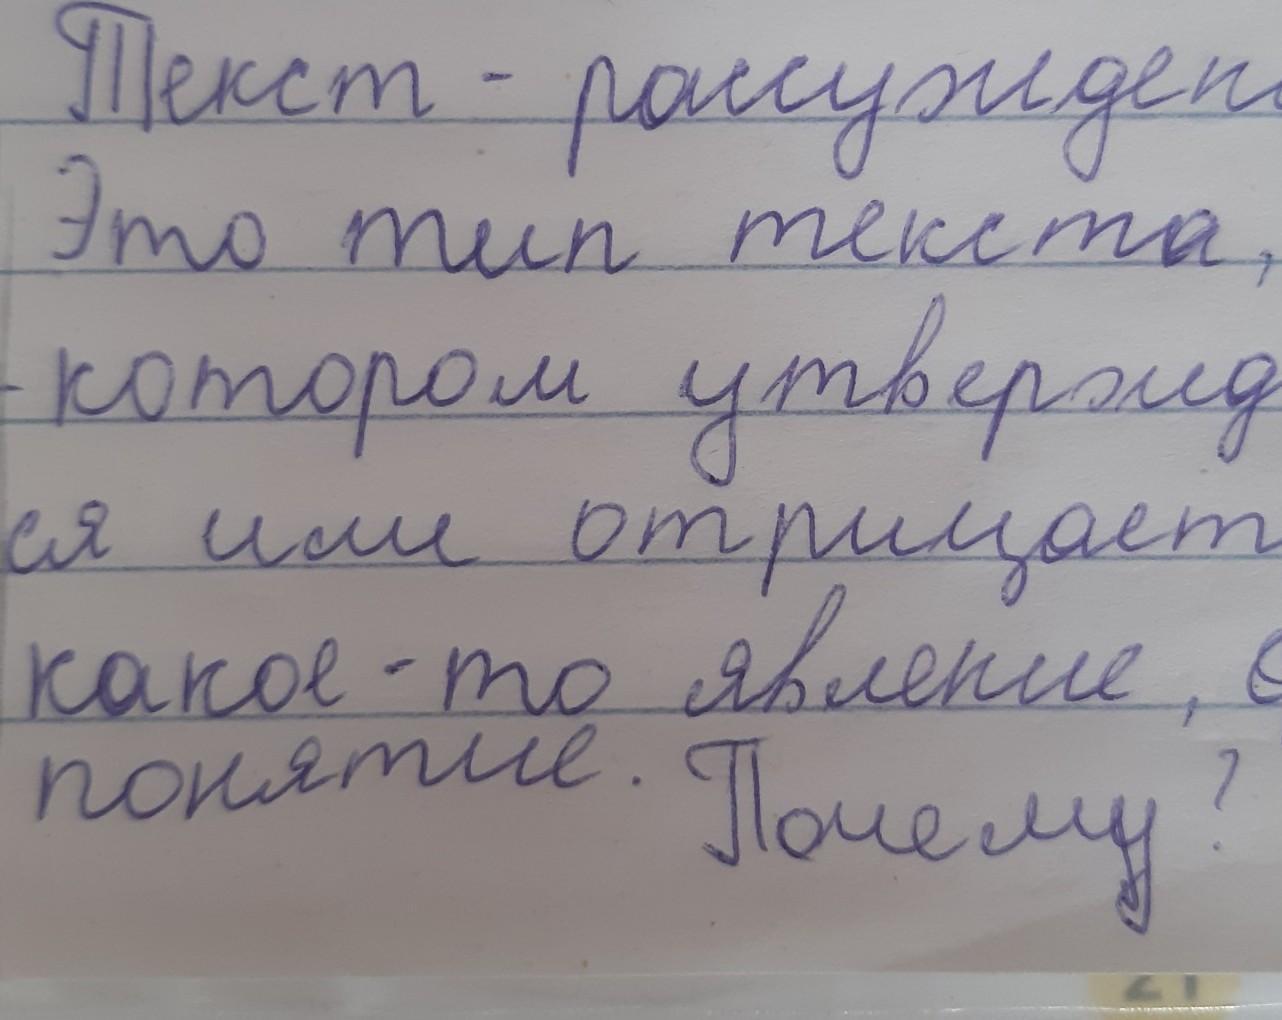 Текст - рассужден
Это тип текста,
- котором утвержд
ся или отрицает
какое-то явление,
понятие. Почему?
21